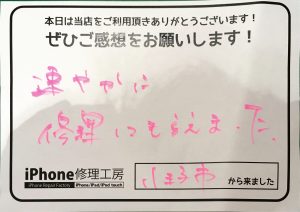 本日は当店をご利用頂きありがとうございます！
ぜひご感想をお願いします！
速やかに
修理にも らえました。
iPhone修理工房
iPhone Repair Factory
iPhone/iPad/iPod touch
八王子市
から来ました